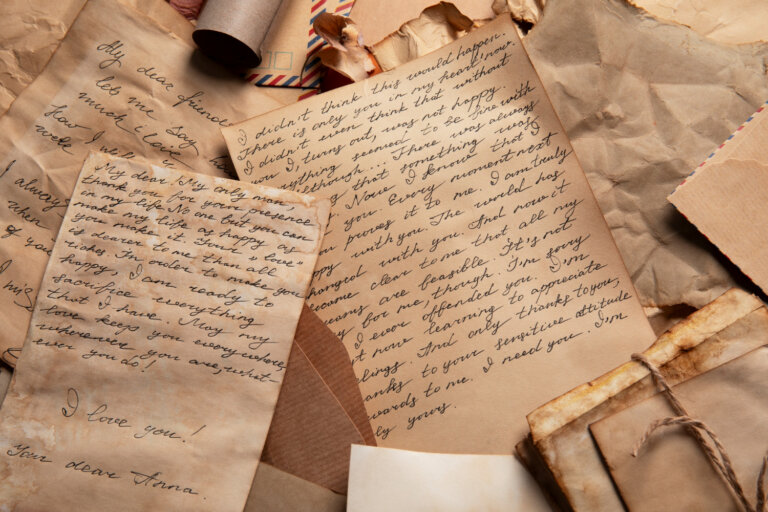 My dear friend
let me say
much I love
How I will
were
I always
when
of you
I his
My dear. My only man
thank you for your presence
in my life. No one but you can
make my life as happy as
you make it. Your "love"
is dearer to me than all
riches. In order to make you
happy, I am ready to
sacrifice everything
that I have. May my
love keep you everywhere
wherever you are, what-
ever you do!
I love you!
Your dear Anna.
I didn't think this would happen.
There is only you in my heart now.
I didn't even think that without
you I, turns out, was not happy.
everything seemed to be fine with
although... There was always
that something was
Now I know that I
you. Every moment next
proves it to me. I am truly
happy with you. The world has
changed with you. And now it
became clear to me that all my
dreams are feasible. It's not
easy for me, though. I'm sorry
I ever offended you. I'm
just now learning to appreciate
feelings. And only thanks to you,
thanks to your sensitive attitude
towards to me. I need you. I'm
yours.